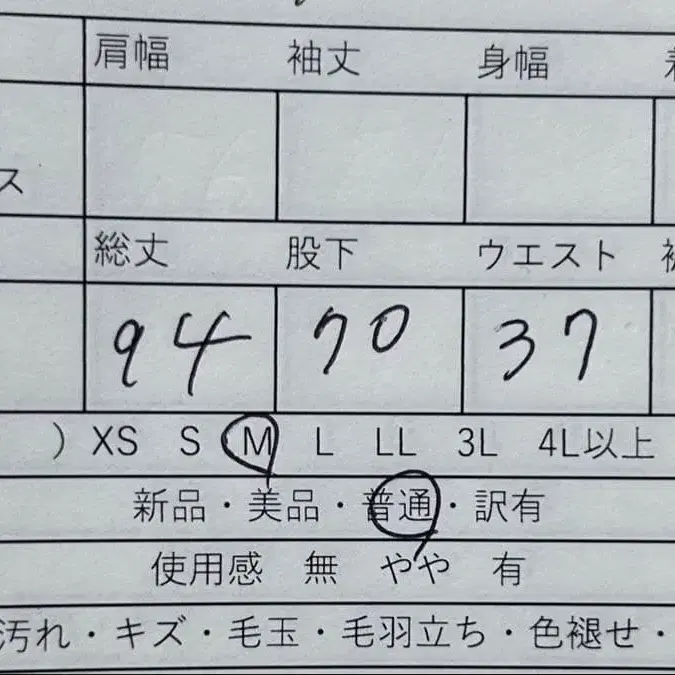 肩幅 袖丈 身幅
ス
総丈 股下 ウエスト
94 70 37
) XS S M L LL 3L 4L以上
新品・美品・普通・訳有
使用感 無 やや 有
汚れ・キズ・毛玉・毛羽立ち・色褪せ・